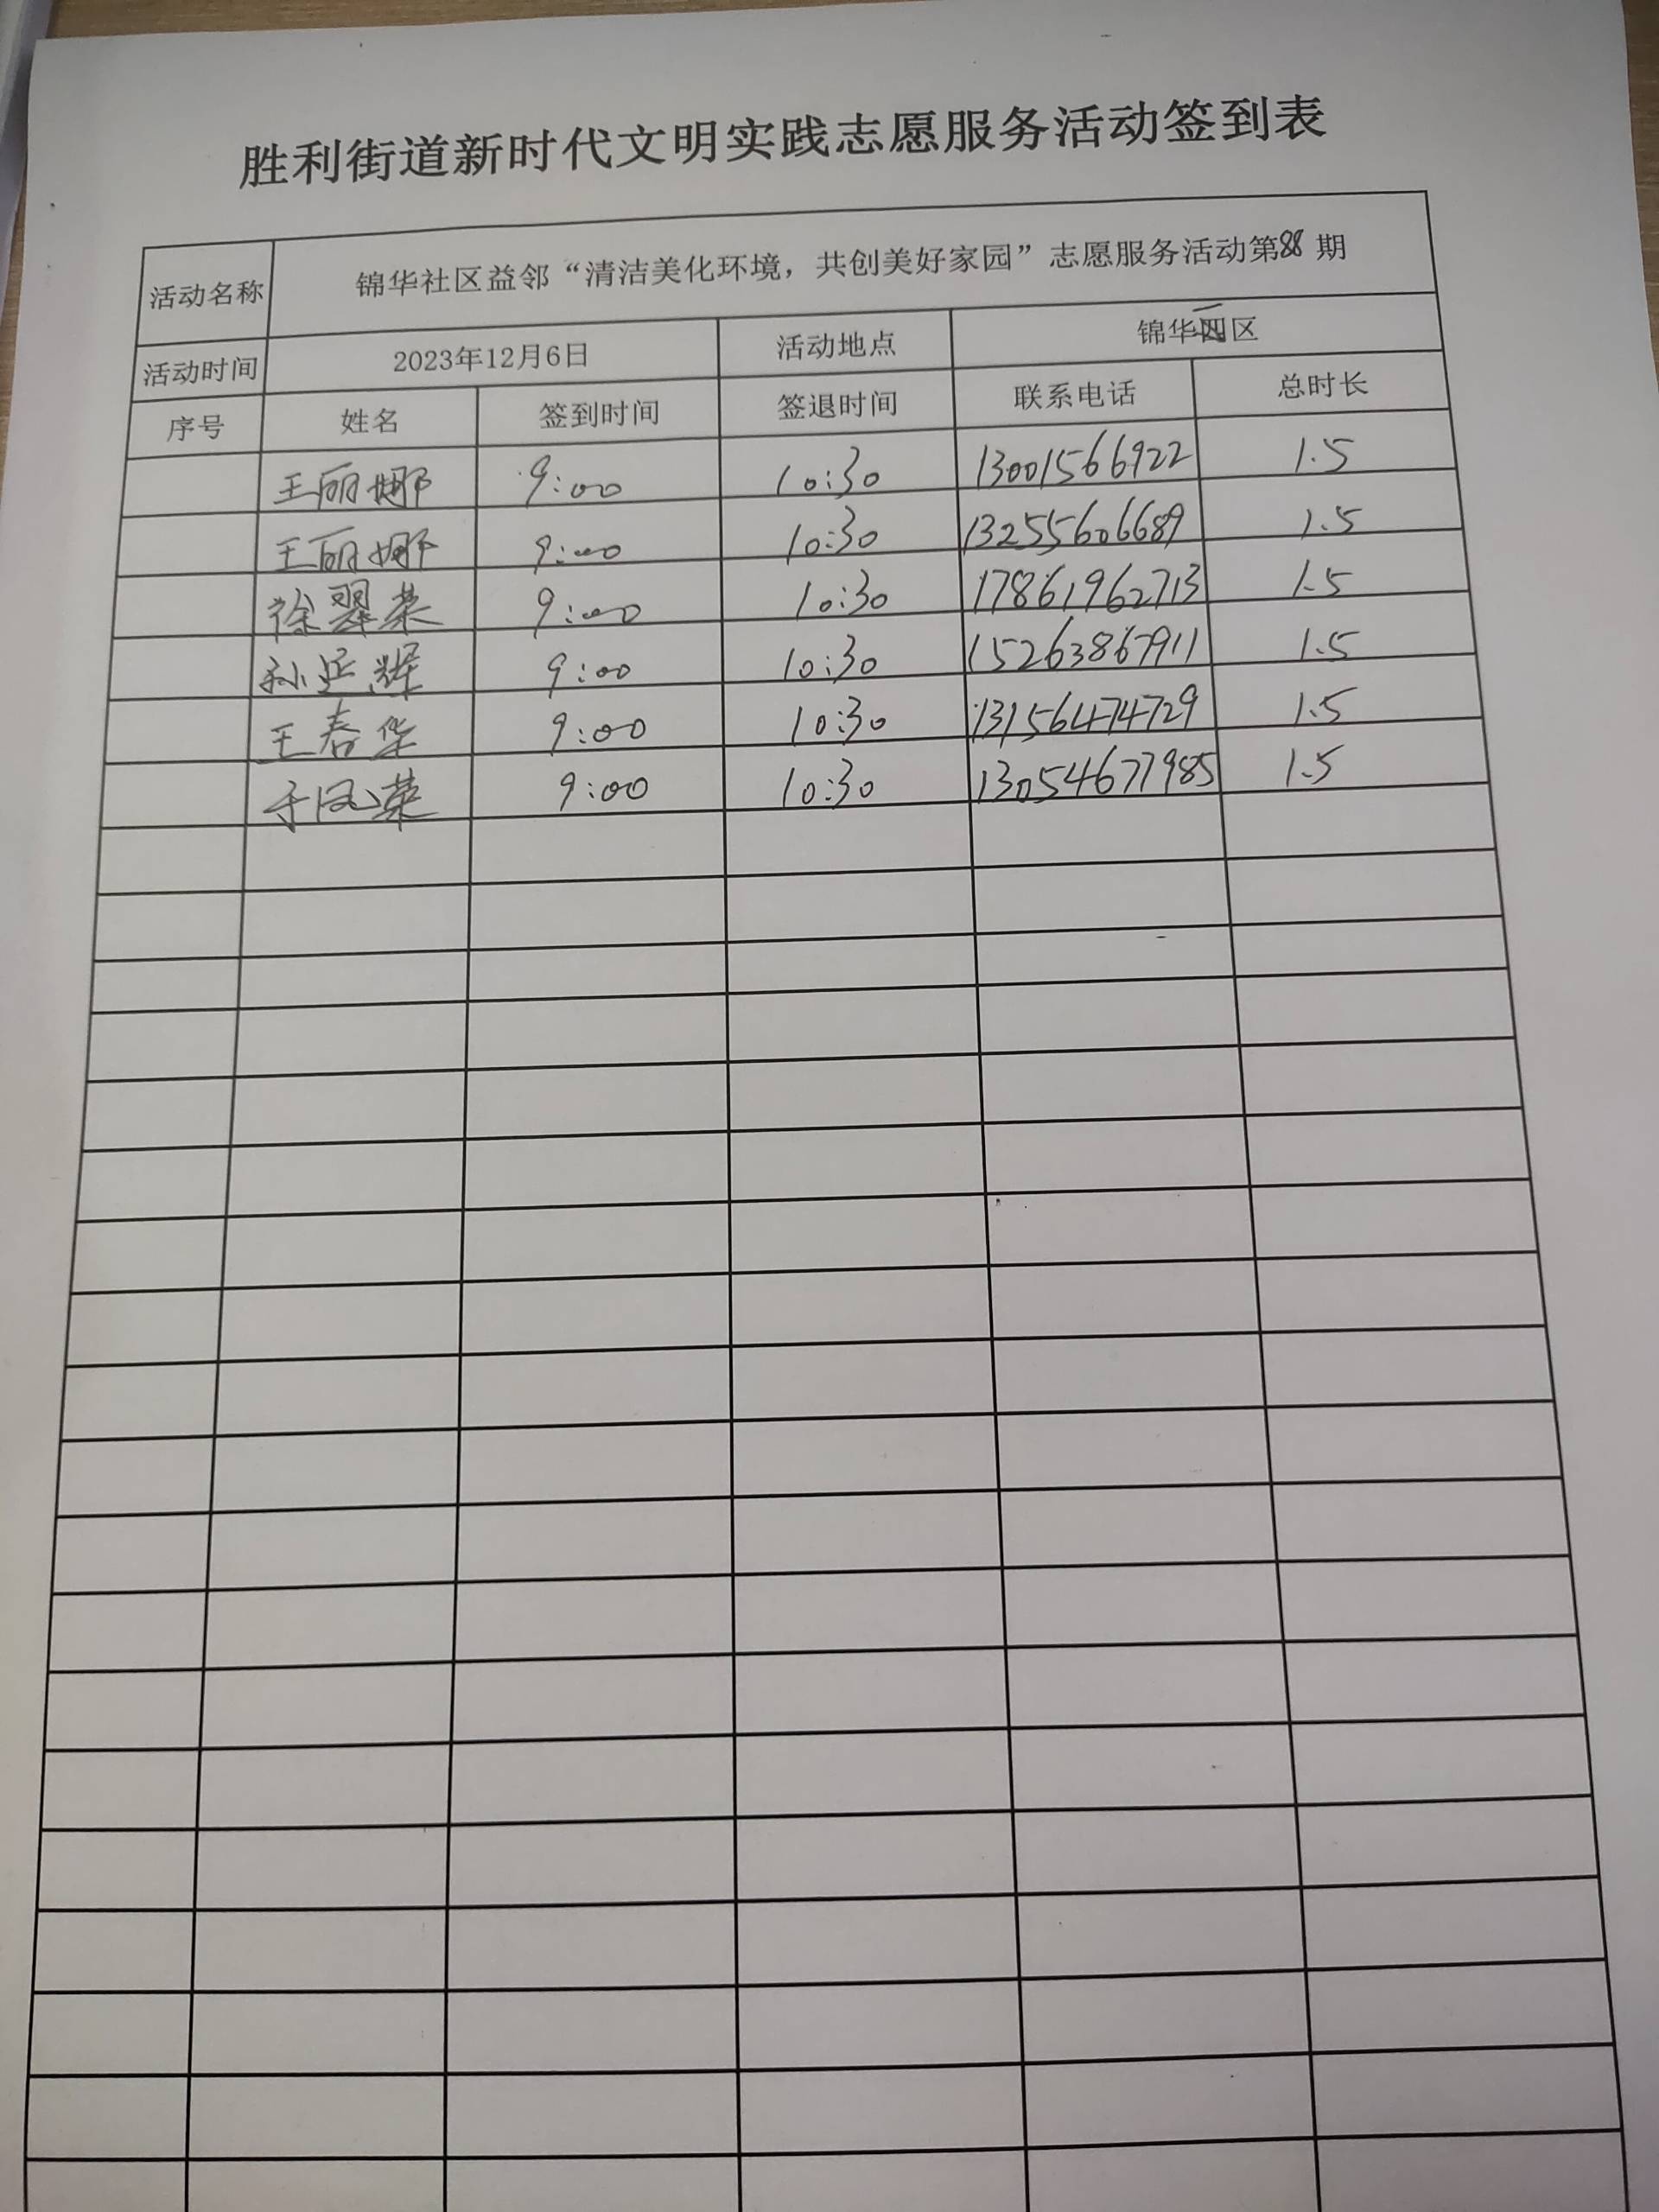 胜利街道新时代文明实践志愿服务活动签到表
活动名称 锦华社区益邻“清洁美化环境，共创美好家园”志愿服务活动第88期
活动时间 2023年12月6日 活动地点 锦华区
序号 姓名 签到时间 签退时间 联系电话 总时长
王丽娜 9:00 10:30 13001566922 1.5
王丽娜 9:00 10:30 13255606689 1.5
徐翠荣 9:00 10:30 17861962713 1.5
孙延辉 9:00 10:30 15263867911 1.5
王春华 9:00 10:30 13156474729 1.5
于凤荣 9:00 10:30 13054677985 1.5